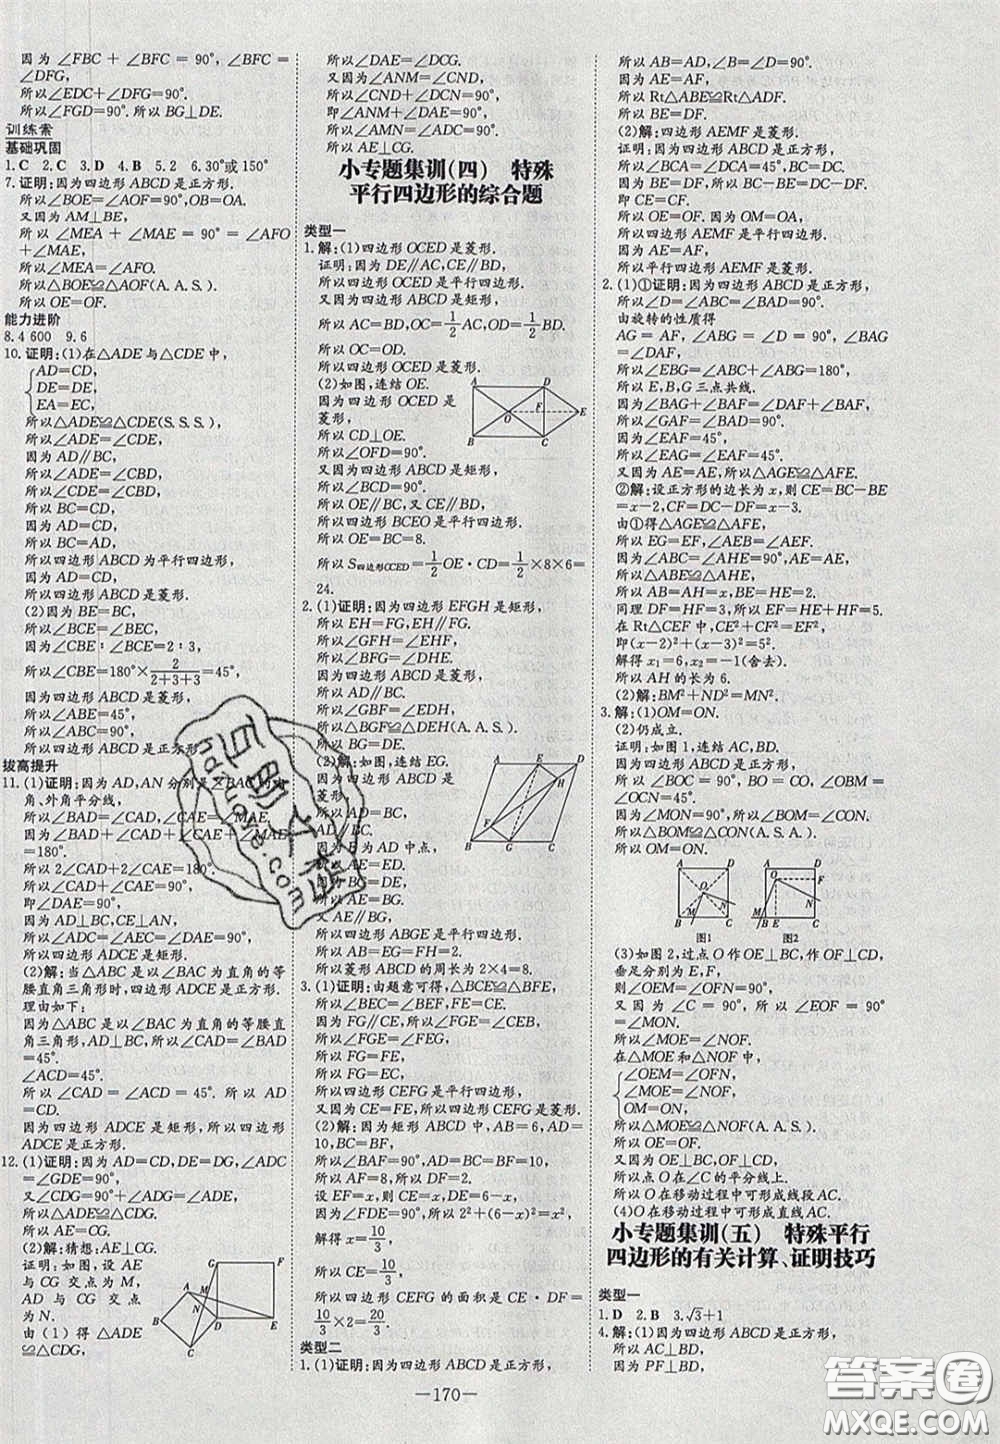 因为∠FBC+∠BFC=90°,∠BFC=
∠DFG,
所以∠EDC+∠DFG=90°.
所以∠FGD=90°.所以BG⊥DE.
训练案
基础巩固
1.C 2.C 3.D 4.B 5.2 6.30°或150°
7.证明:因为四边形ABCD是正方形.
所以∠BOE=∠AOF=90°,OB=OA.
又因为AM⊥BE,
所以∠MEA+∠MAE=90°=∠AFO
+∠MAE,
所以∠MEA=∠AFO.
所以△BOE≌△AOF(A.A.S.).
所以OE=OF.
能力进阶
8.4 600 9.6
10.证明:(1)在△ADE与△CDE中,
AD=CD,
DE=DE,
EA=EC,
所以△ADE≌△CDE(S.S.S.),
所以∠ADE=∠CDE,
因为AD∥BC,
所以∠ADE=∠CBD,
所以∠CDE=∠CBD,
所以BC=CD,
因为AD=CD,
所以BC=AD,
所以四边形ABCD为平行四边形,
因为AD=CD,
所以四边形ABCD是菱形.
(2)因为BE=BC,
所以∠BCE=∠BEC,
因为∠CBE∶∠BCE=2∶3,
所以∠CBE=180°×2/(2+3+3)=45°,
因为四边形ABCD是菱形,
所以∠ABE=45°,
所以∠ABC=90°,
所以四边形ABCD是正方形.
拔高提升
11.(1)证明:因为AD,AN分别是∠BAC的内
角、外角平分线,
所以∠BAD=∠CAD,∠CAE=∠MAE,
因为∠BAD+∠CAD+∠CAE+∠MAE
=180°.
所以2∠CAD+2∠CAE=180°.
所以∠CAD+∠CAE=90°.
即∠DAE=90°.
因为AD⊥BC,CE⊥AN,
所以∠ADC=∠AEC=∠DAE=90°,
所以四边形ADCE是矩形.
(2)解:当△ABC是以∠BAC为直角的等
腰直角三角形时,四边形ADCE是正方形.
理由如下:
因为△ABC是以∠BAC为直角的等腰直
角三角形,AD⊥BC,所以∠CAD=∠BAD
=45°.
∠ACD=45°.
所以∠CAD=∠ACD=45°,所以AD
=CD.
因为四边形ADCE是矩形,所以四边形
ADCE是正方形.
12.(1)证明:因为AD=CD,DE=DG,∠ADC
=∠GDE=90°,
又∠CDG=90°+∠ADG=∠ADE,
所以△ADE≌△CDG.
所以AE=CG.
(2)解:猜想:AE⊥CG.
证明:如图,设AE
与CG交点为M,
AD与CG交点
为N.
由(1)得△ADE
≌△CDG,
G F A M N B D E C
所以∠DAE=∠DCG.
又因为∠ANM=∠CND,
所以∠CND+∠DCN=90°,
即∠ANM+∠DAE=90°.
所以∠AMN=∠ADC=90°.
所以AE⊥CG.
小专题集训(四) 特殊
平行四边形的综合题
类型一
1.解:(1)四边形OCED是菱形.
证明:因为DE∥AC,CE∥BD,
所以四边形OCED是平行四边形.
因为四边形ABCD是矩形,
所以AC=BD,OC=1/2AC,OD=1/2BD.
所以OC=OD.
所以四边形OCED是菱形.
(2)如图,连结OE.
因为四边形OCED是
菱形,
所以CD⊥OE.
所以∠OFD=90°.
A D F O E B C
又因为四边形ABCD是矩形,
所以∠BCD=90°.
所以OE∥BC,又CE∥BD,
所以四边形BCEO是平行四边形.
所以OE=BC=8.
所以S四边形OCED=1/2OE·CD=1/2×8×6=
24.
2.(1)证明:因为四边形EFGH是矩形,
所以EH=FG,EH∥FG,
所以∠GFH=∠EHF,
所以∠BFG=∠DHE.
因为四边形ABCD是菱形,
所以AD∥BC,
所以∠GBF=∠EDH,
所以△BGF≌△DEH(A.A.S.),
所以BG=DE.
(2)解:如图,连结EG.
因为四边形ABCD是
菱形,
所以AD=BC,
AD∥BC.
因为E为AD中点,
所以AE=ED.
因为BG=DE,
所以AE=BG.
又AE∥BG,
A E D H F B G C
所以四边形ABGE是平行四边形.
所以AB=EG=FH=2.
所以菱形ABCD的周长为2×4=8.
3.(1)证明:由题意可得,△BCE≌△BFE,
所以∠BEC=∠BEF,FE=CE.
因为FG∥CE,所以∠FGE=∠CEB,
所以∠FGE=∠FEG,
所以FG=FE,
所以FG=EC,
所以四边形CEFG是平行四边形,
又因为CE=FE,所以四边形CEFG是菱形.
(2)解:因为矩形ABCD中,AB=6,AD=
10,BC=BF,
所以∠BAF=90°,AD=BC=BF=10,
所以AF=8,所以DF=2,
设EF=x,则CE=x,DE=6-x,
因为∠FDE=90°,所以2²+(6-x)²=x²,
解得x=10/3,
所以CE=10/3,
所以四边形CEFG的面积是CE·DF=
10/3×2=20/3.
类型二
1.(1)证明:因为四边形ABCD是正方形,
所以AB=AD,∠B=∠D=90°.
因为AE=AF,
所以Rt△ABE≌Rt△ADF.
所以BE=DF.
(2)解:四边形AEMF是菱形.
证明:因为四边形ABCD是正方形,
所以∠BCA=∠DCA=45°,BC=DC.
因为BE=DF,所以BC-BE=DC-DF.
即CE=CF.
所以OE=OF.因为OM=OA,
所以四边形AEMF是平行四边形.
因为AE=AF,
所以平行四边形AEMF是菱形.
2.(1)①证明:因为四边形ABCD是正方形,
所以∠D=∠ABC=∠BAD=90°.
由旋转的性质得
AG=AF,∠ABG=∠D=90°,∠BAG
=∠DAF.
所以∠EBG=∠ABC+∠ABG=180°,
所以E,B,G三点共线.
因为∠BAG+∠BAF=∠DAF+∠BAF,
所以∠GAF=∠BAD=90°.
因为∠EAF=45°,
所以∠EAG=∠EAF=45°.
又因为AE=AE,所以△AGE≌△AFE.
②解:设正方形的边长为x,则CE=BC-BE
=x-2,CF=DC-DF=x-3.
由①得△AGE≌△AFE,
所以EG=EF,∠AEB=∠AEH.
因为∠ABC=∠AHE=90°,
所以△ABE≌△AHE,
所以AB=AH=x,BE=HE=2.
同理DF=HF=3,所以EF=HE+HF=5.
在Rt△CEF中,CE²+CF²=EF²,
即(x-2)²+(x-3)²=5².
解得x₁=6,x₂=-1(舍去).
所以AH的长为6.
(2)解:BM²+ND²=MN².
3.解:(1)OM=ON.
(2)仍成立.
证明:如图1,连结AC,BD.
所以∠BOC=90°,BO=CO,∠OBM=
∠OCN=45°.
因为∠MON=90°,所以∠BOM=∠CON,
所以△BOM≌△CON(A.S.A.).
所以OM=ON.
A D O M N B C 图1
A D O F M N B E C 图2
(3)如图2,过点O作OE⊥BC,OF⊥CD,
垂足分别为E,F,
则∠OEM=∠OFN=90°.
又因为∠C=90°,所以∠EOF=90°
=∠MON.
所以∠MOE=∠NOF.
在△MOE和△NOF中,
∠OEM=∠OFN,
∠MOE=∠NOF,
OM=ON,
所以△MOE≌△NOF(A.A.S.).
所以OE=OF.
又因为OE⊥BC,OF⊥CD,
所以点O在∠C的平分线上.
所以O在移动过程中可形成线段AC.
(4)O在移动过程中可形成直线AC.
小专题集训(五) 特殊平行
四边形的有关计算、证明技巧
类型一
1.D 2.B 3.√3+1
4.解:(1)因为四边形ABCD是正方形,
所以AC⊥BD.
因为PF⊥BD,
—170—
百助文档
hdzuoye.com
答案圈
MXQE.COM